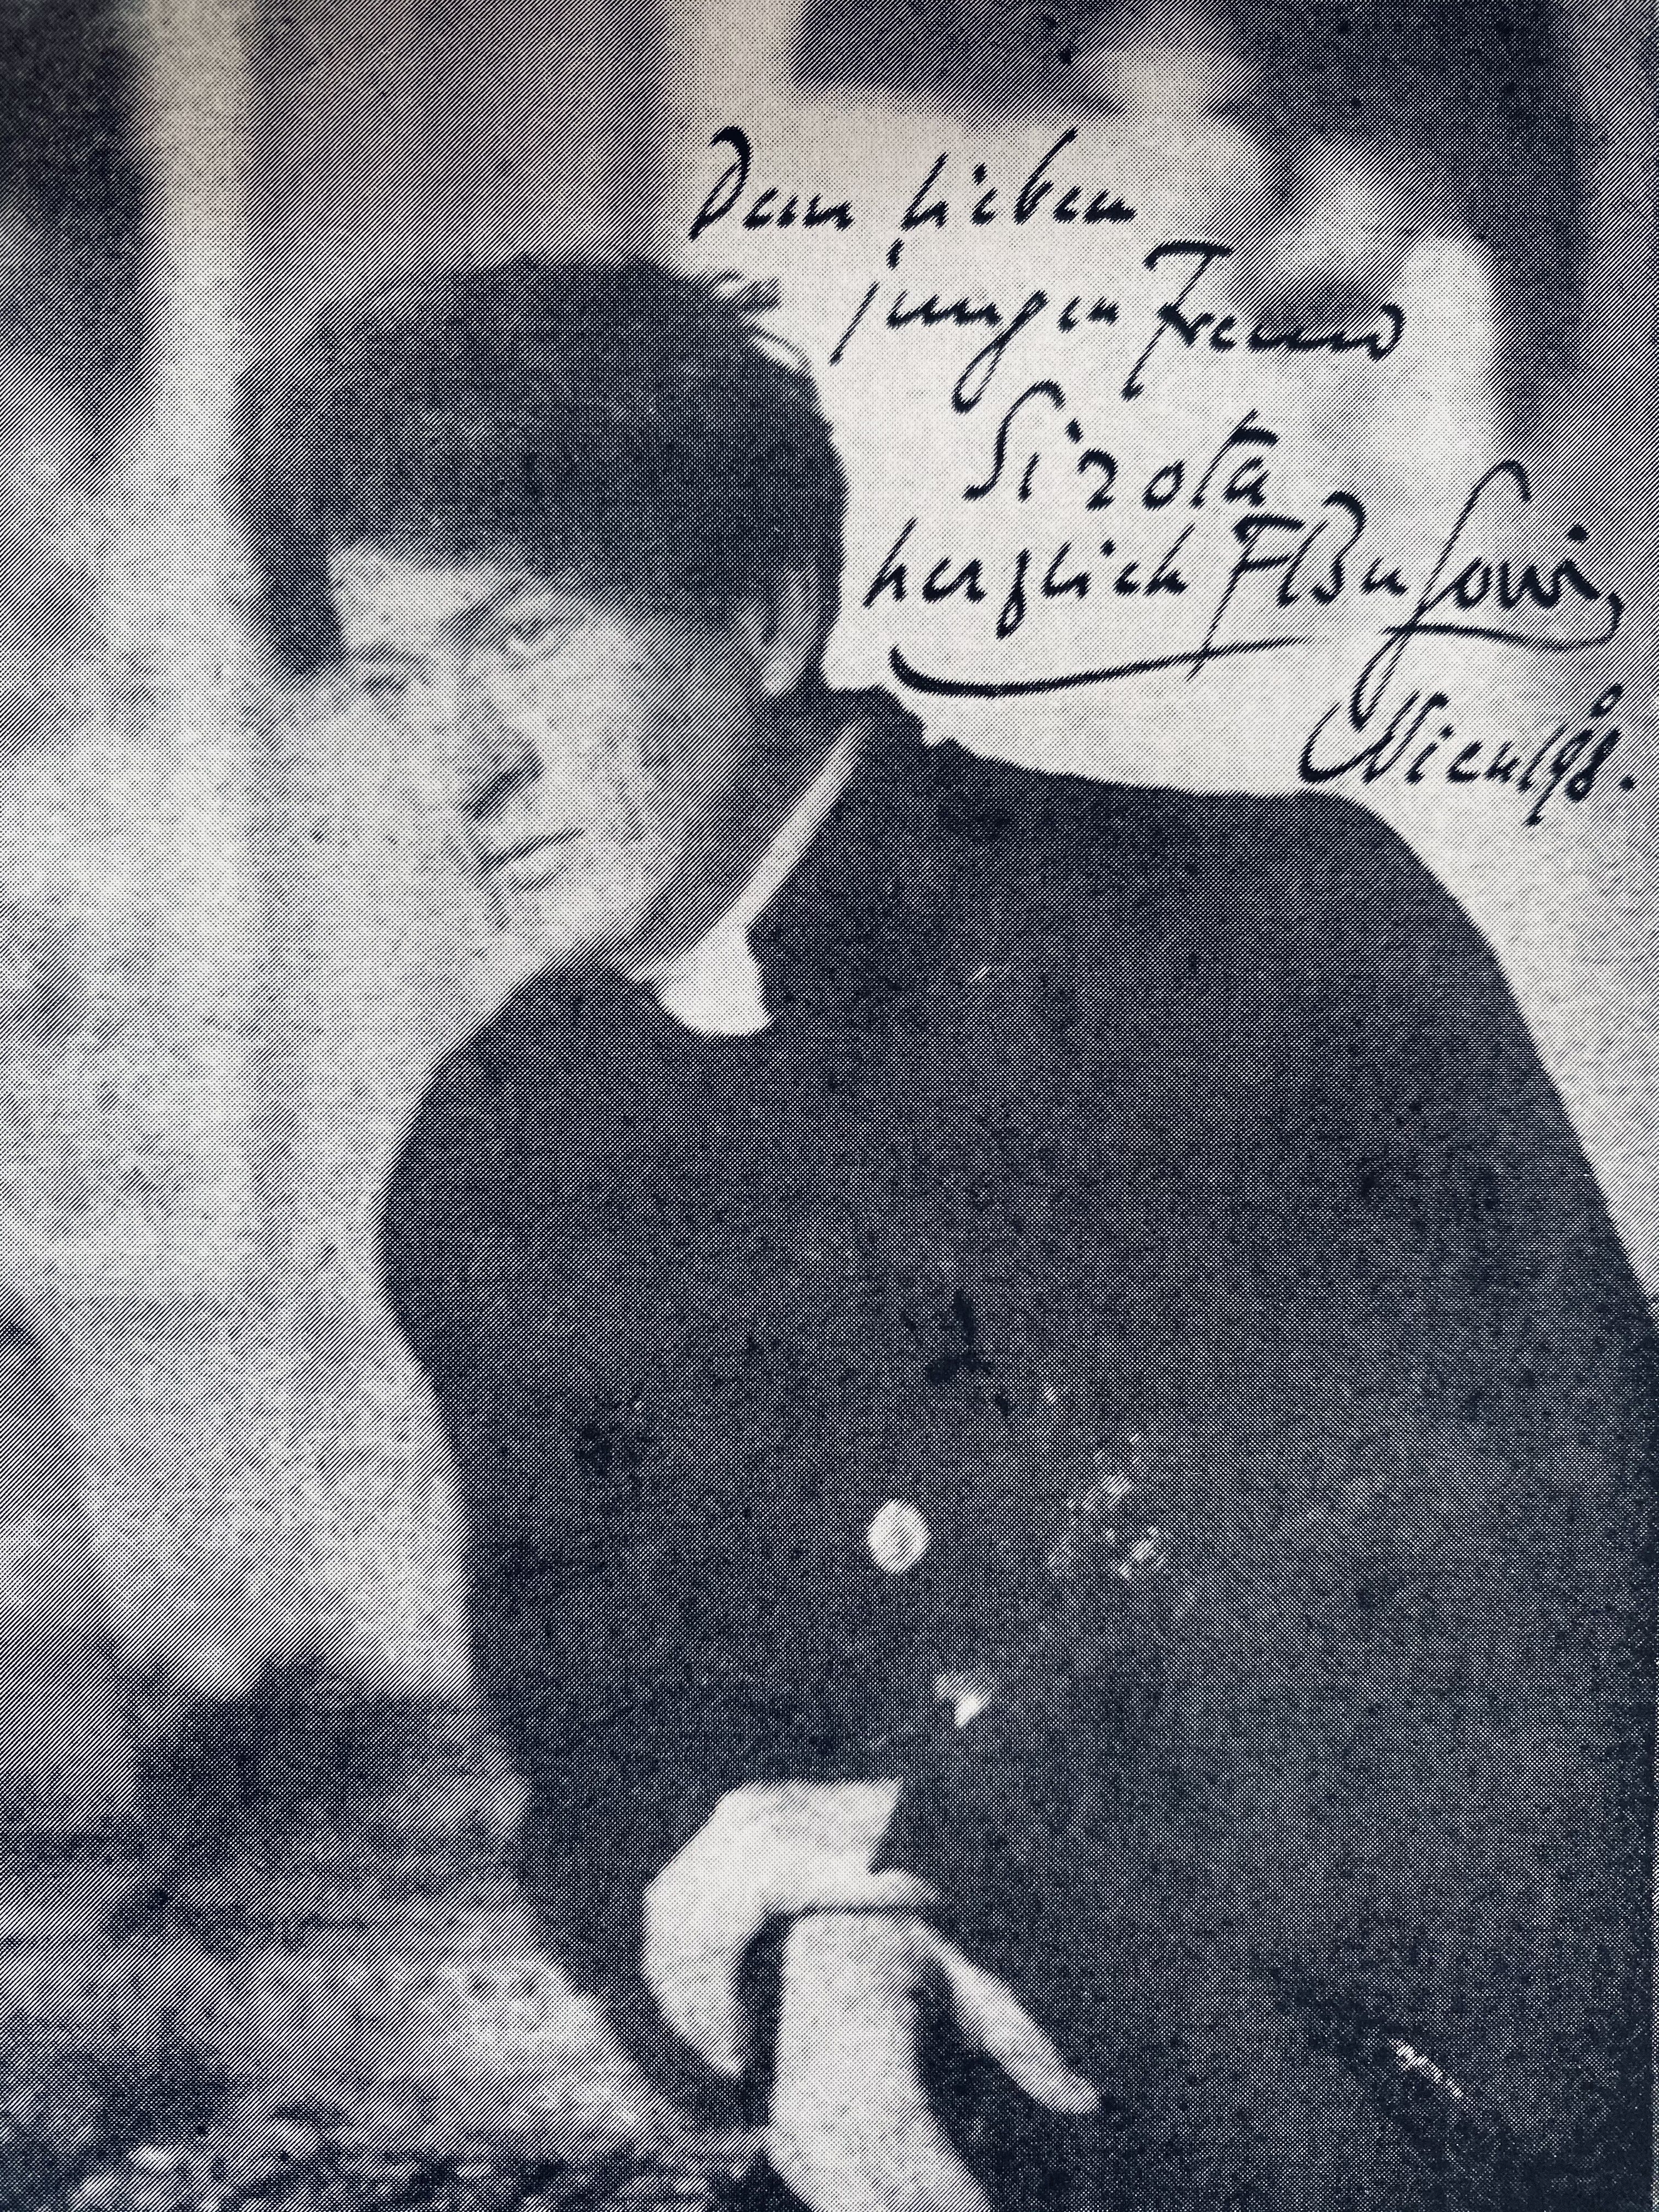 Dem lieben
jungen Freund
Sirota
herzlich FBusoni,
Wien 1908.